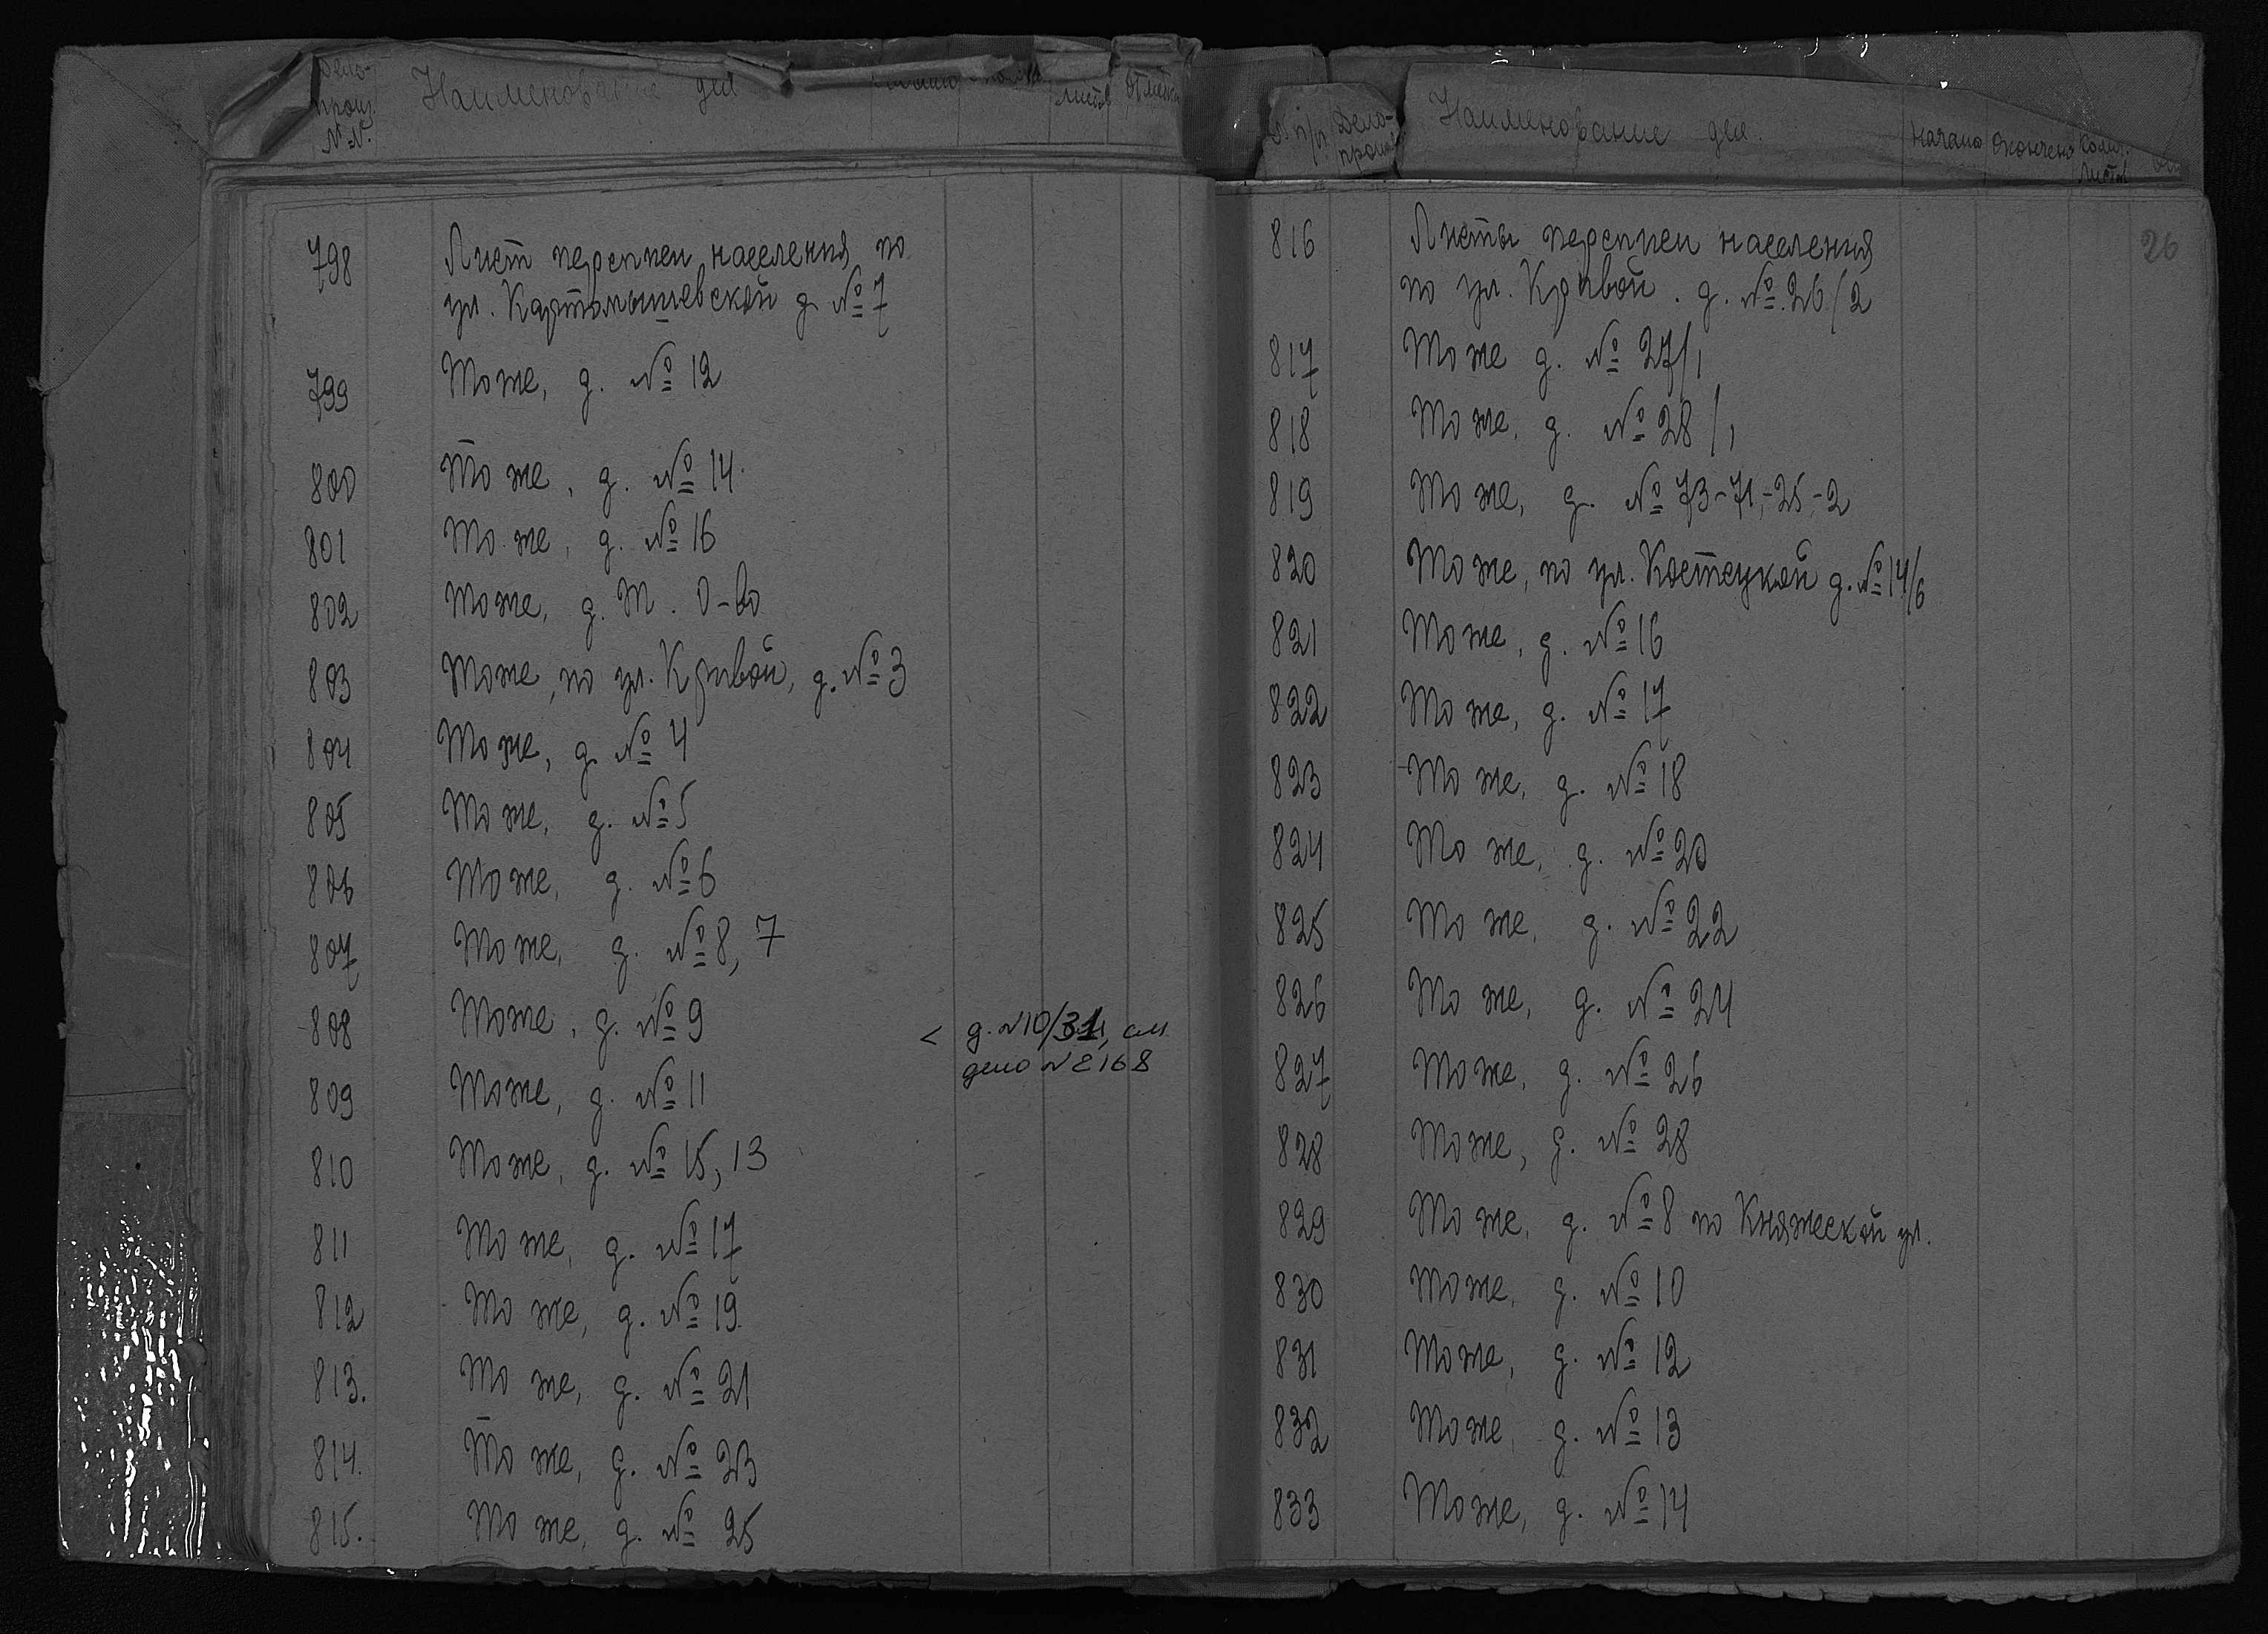 Дело-
произ.
№№.
Наименование дел
листов
798 Лист переписи населения по
ул. Картамышевской д №7
799 Тоже, д. № 12
800 То же, д. № 14
801 То же, д. № 16
802 Тоже, д. Т. О-во
803 Тоже, по ул. Кривой, д. № 3
804 Тоже, д № 4
805 То же, д. № 5
806 То же, д. № 6
807 То же, д. № 8, 7
808 Тоже, д. № 9
< д. №10/31, см
дело №2168
809 Тоже, д. № 11
810 Тоже, д. № 15, 13
811 То же, д. № 17
812 То же, д. № 19.
813. То же, д. № 21
814. То же, д. № 23
815. То же, д. № 25
п/п Дело-
произ
Наименование дел.
Начато Окончено Колич.
Листов
26
816 Листы переписи населения
по ул. Кривой. д. № 26/2
817 То же д. № 27/1
818 То же, д. № 28/1
819 То же, д. № 73-71,-25-2
820 То же, по ул. Костецкой д. № 14/6
821 То же, д. № 16
822 То же, д. № 17
823 То же, д. № 18
824 То же, д. № 20
825 То же, д. № 22
826 То же, д. № 24
827 То же, д. № 26
828 То же, д. № 28
829 То же, д. № 8 по Княжеской ул.
830 Тоже, д. № 10
831 Тоже, д. № 12
832 То же, д. № 13
833 То же, д. № 14